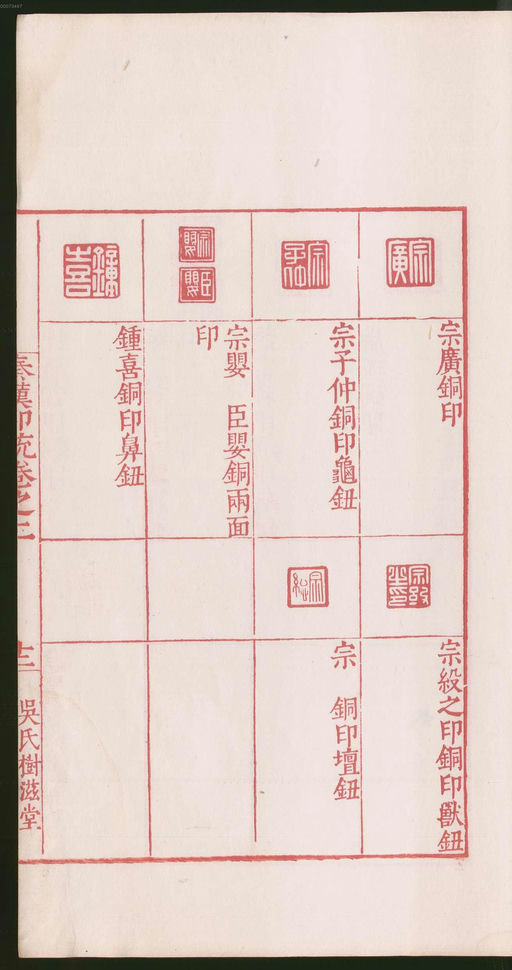 宗廣
宗廣銅印
宗子仲銅印龜鈕
宗嬰
臣嬰
宗嬰　臣嬰銅兩面
印
鍾喜
鍾喜銅印鼻鈕
宗之印銅印獸鈕
宗　銅印壇鈕
秦漢印統卷之三
吳氏樹滋堂
00073467